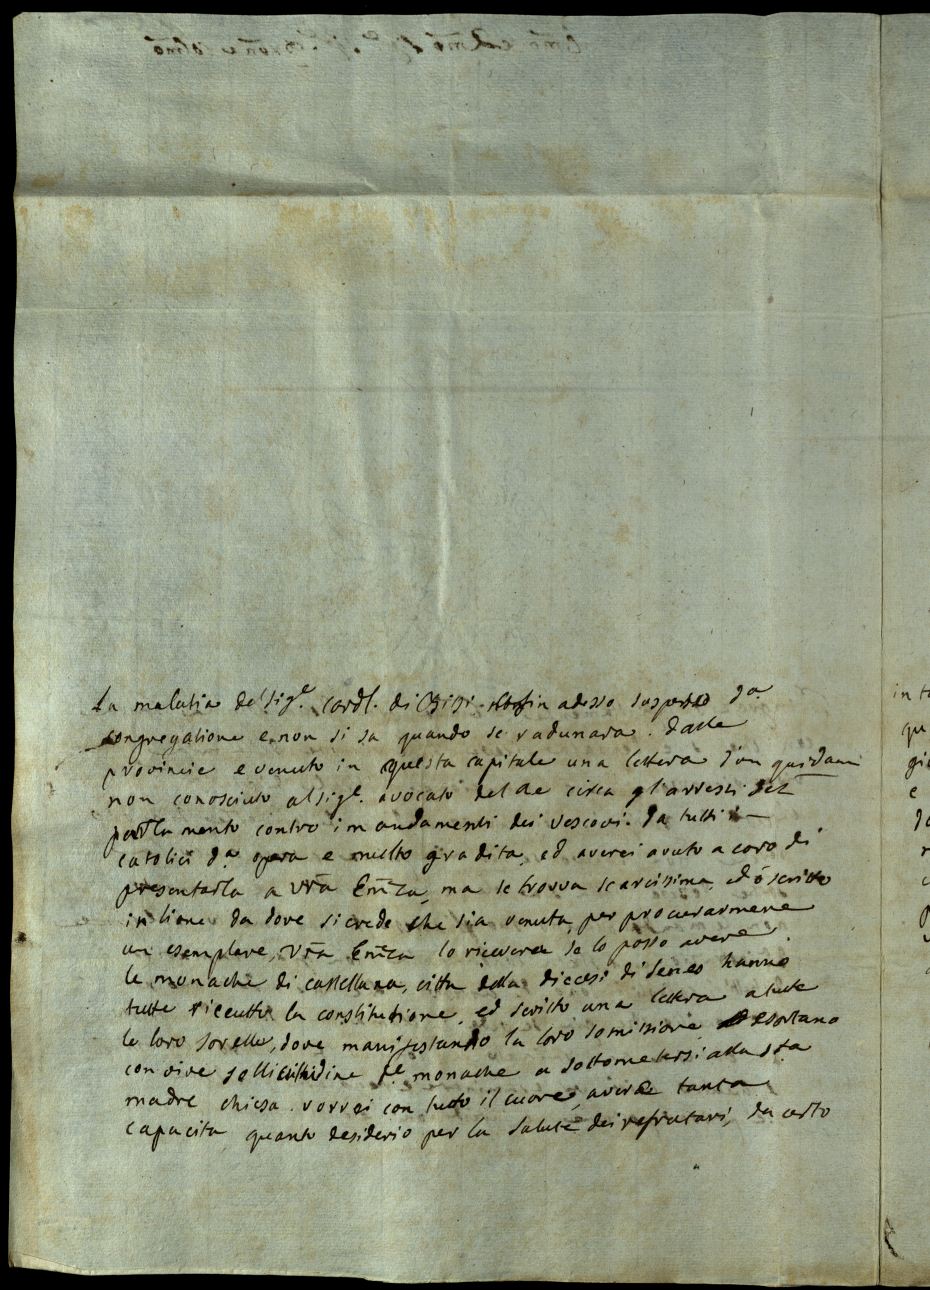 La malatia del sig.e cardl. di Bisi fin adesso suspeso d.a
congregatione e non si sa quando se radunara. dalle
provincie e venuto in questa capitale una lettera d'un quidam
non conosciuto al sig.e avocato del Re circa gl'arresti del
parlamento contro i mandamenti dei vescovi. da tutti i
catolici d.a opera e multo gradita, ed averei avuto a caro di
presentarla a vr̃a Em̃za, ma se trovva scarcissima, ed ó scritto
in lione da dove si crede che sia venuta, per procurarmene
un esemplare, vr̃a Em̃za lo ricevera se lo posso avere.
le monache di castellana, citta della diocesi di senes hanno
tutte riceutto la constitutione, ed scritto una lettera a tute
le loro sorelle, dove manifestando la loro somissione esortano
con vive sollicittudine le monache a sottometersi alla s.ta
madre chiesa. vorrei con tutto il cuore, avere tanta
capacita quanto desiderio per la salute dei refratari, da certo
in
qu
gi
e